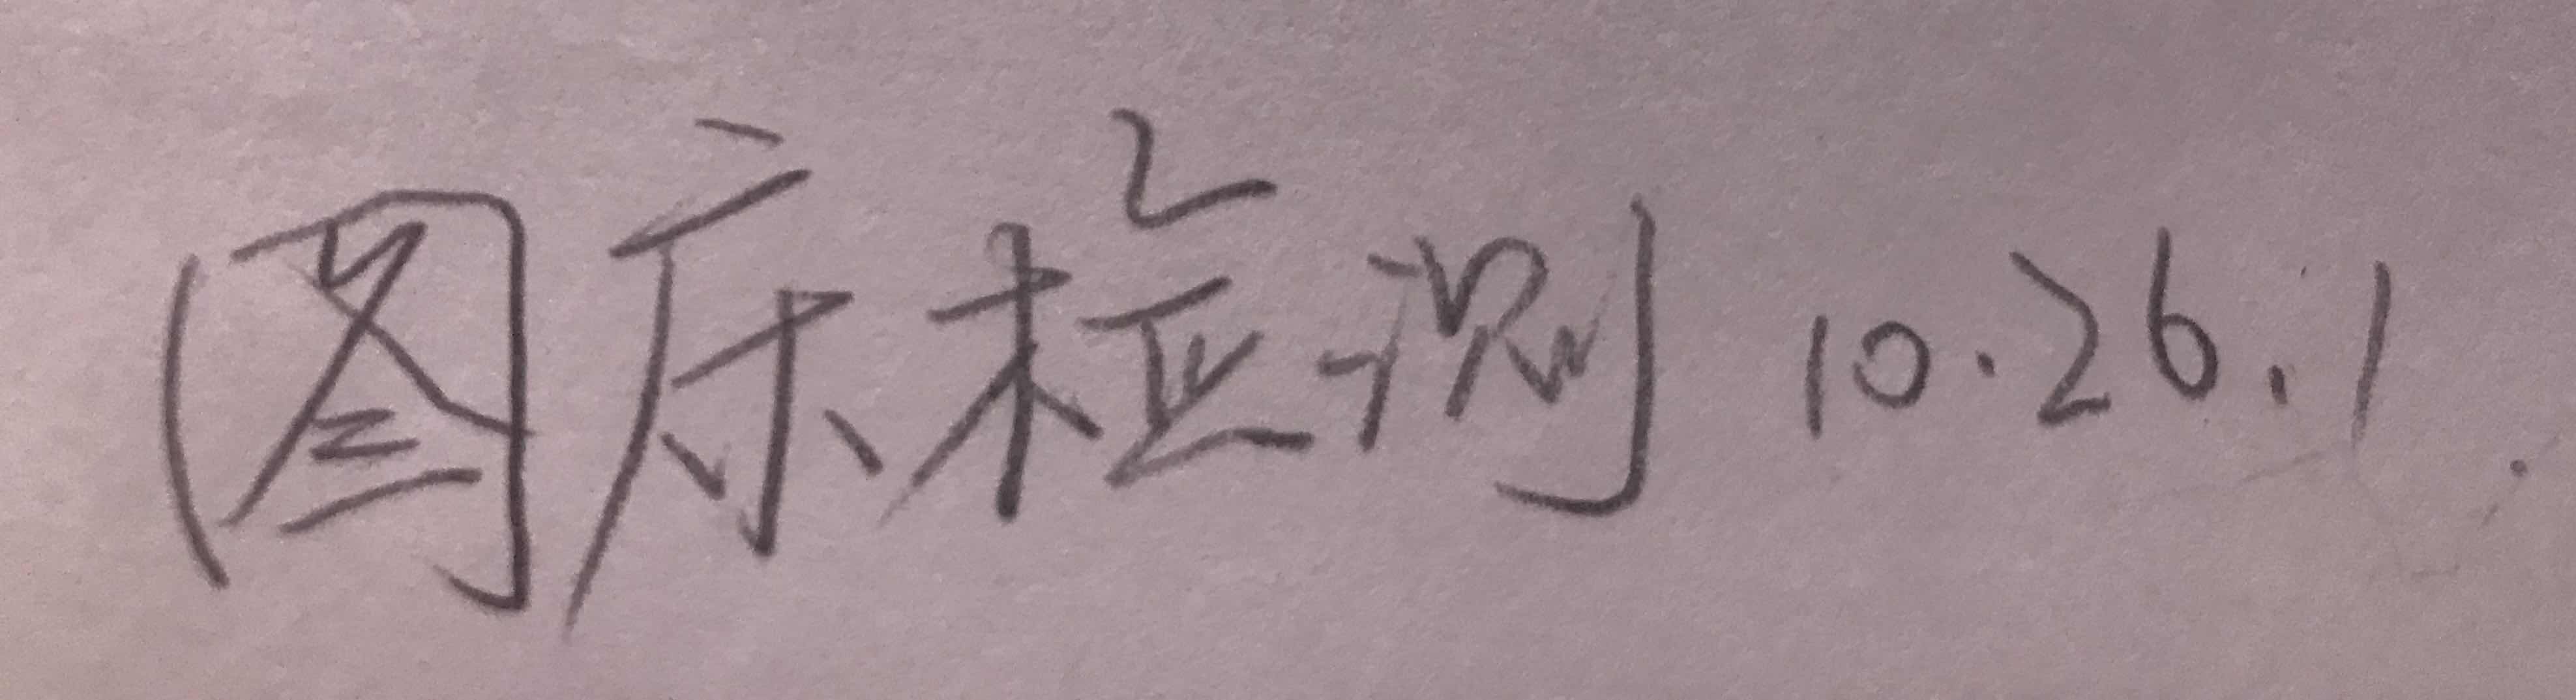 图床检测 10.26.1